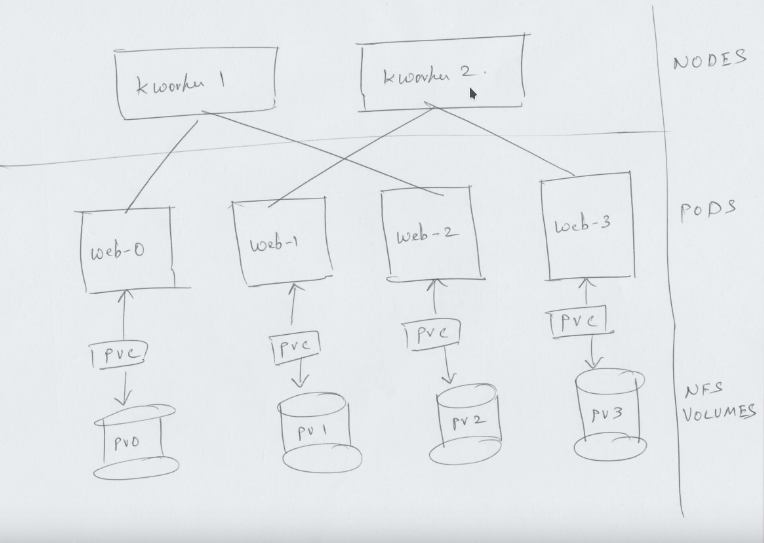 kworker 1
kworker 2.
NODES
web-0
web-1
web-2
web-3
PODS
PVC
PVC
PVC
PVC
PV0
PV1
PV2
PV3
NFS
VOLUMES